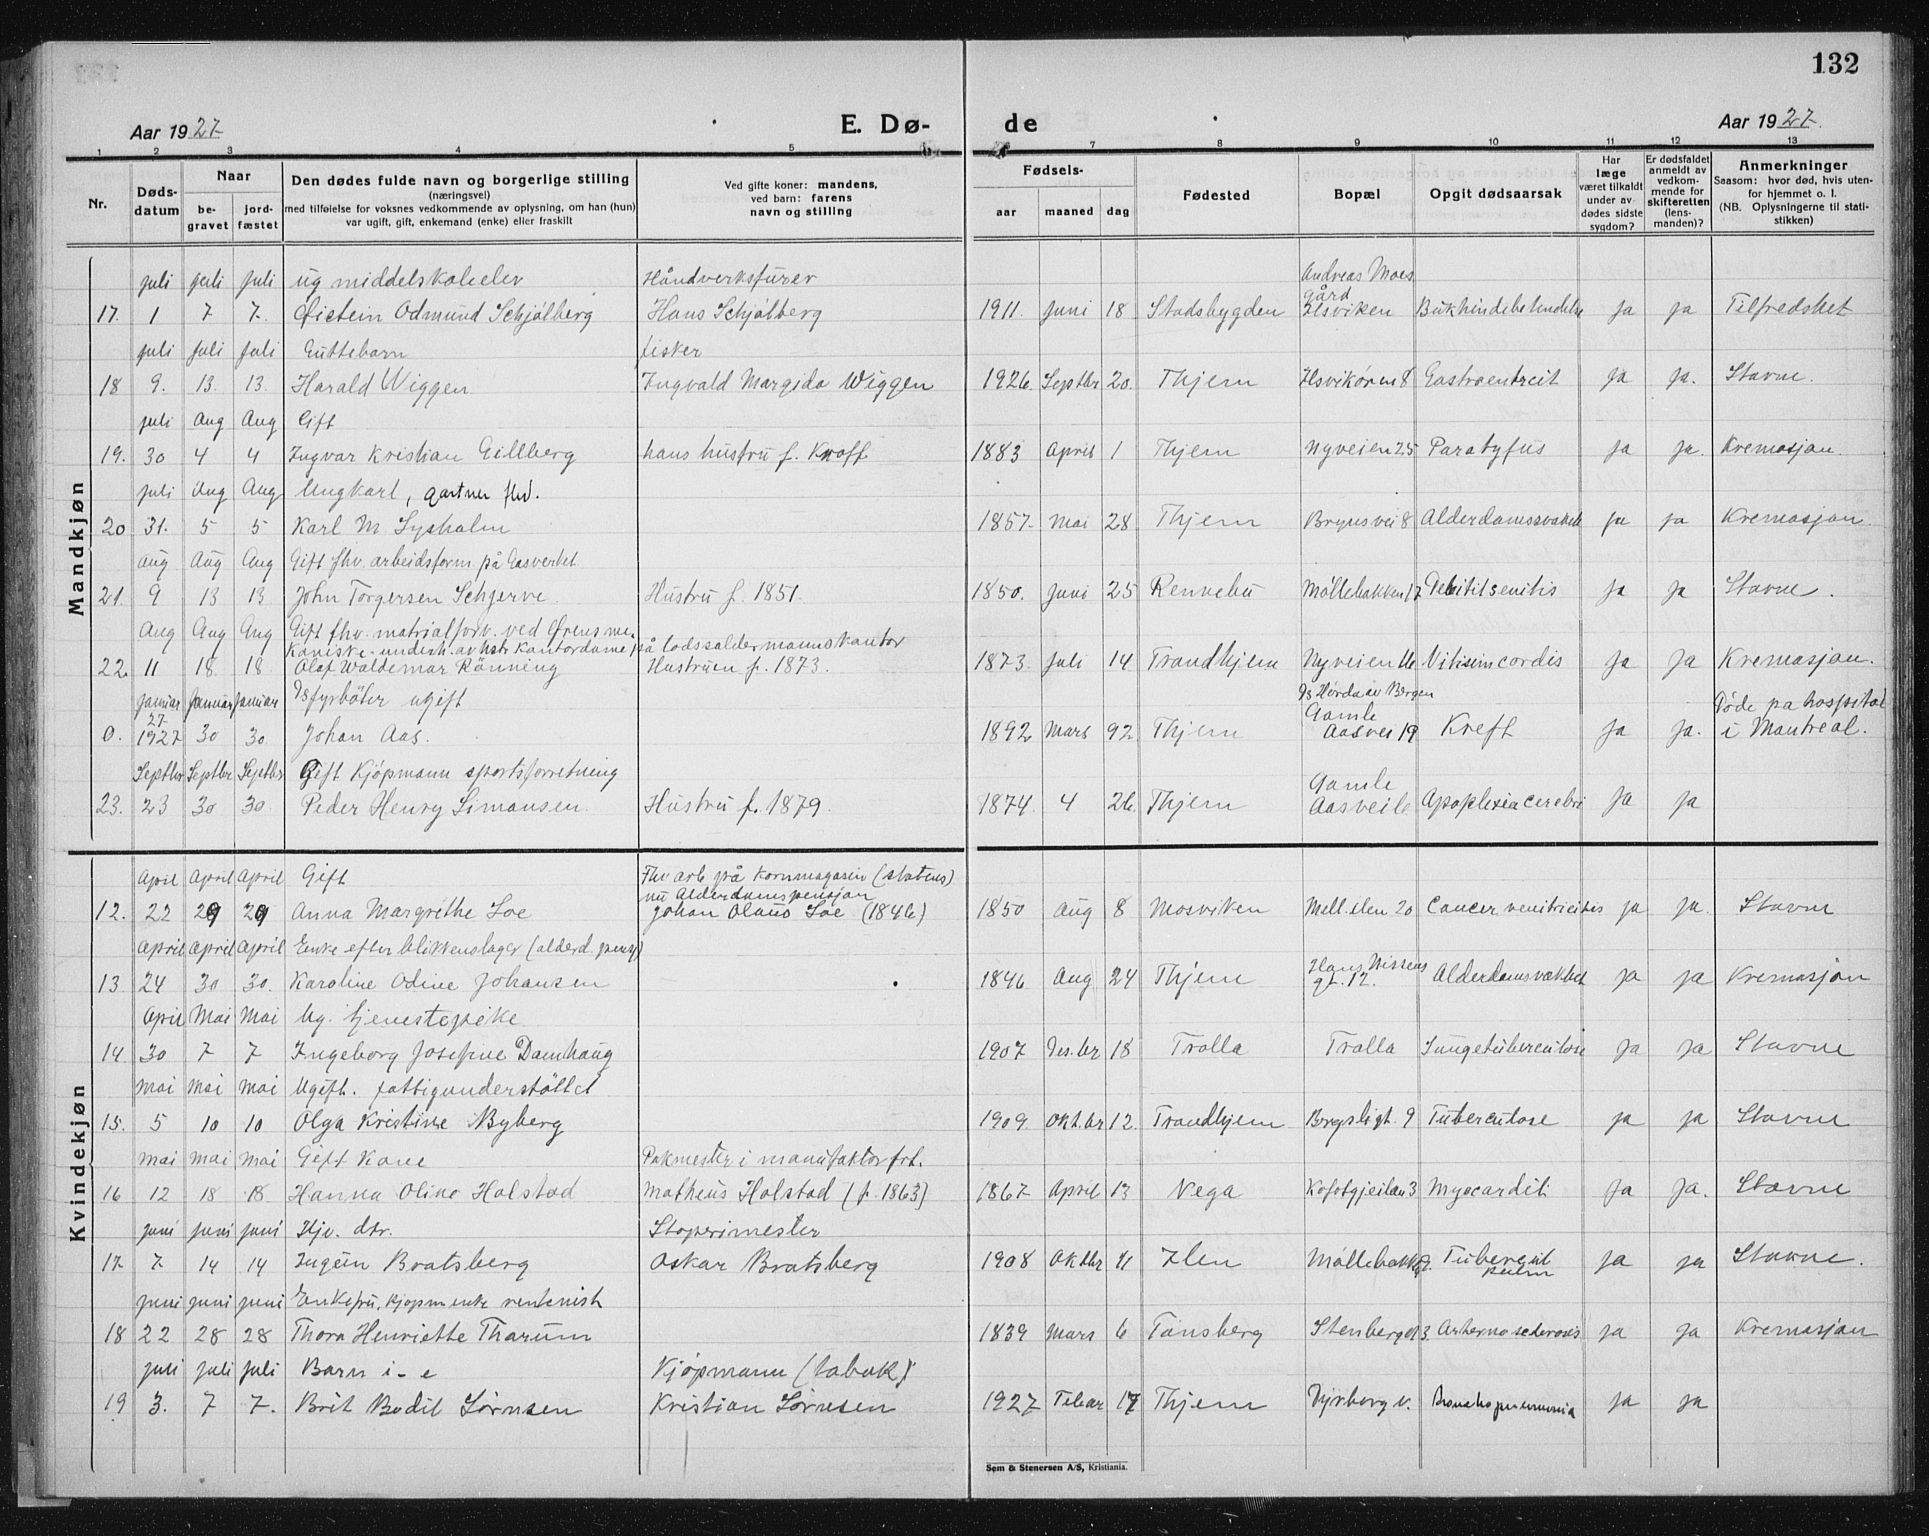 132
Aar 1927.
E. Dø-
de
Aar 1927.
1 2 3 4 5 6 7 8 9 10 11 12 13
Nr.
Døds-
datum
Naar
be-
gravet
jord-
fæstet
Den dødes fulde navn og borgerlige stilling
(næringsvei)
med tilføielse for voksnes vedkommende av oplysning, om han (hun)
var ugift, gift, enkemand (enke) eller fraskilt
Ved gifte koner: mandens,
ved barn: farens
navn og stilling
Fødsels-
aar maaned dag
Fødested
Bopæl
Opgit dødsaarsak
Har
læge
været tilkaldt
under av-
dødes sidste
sygdom?
Er dødsfaldet
anmeldt av
vedkom-
mende for
skifteretten
(lens-
manden)?
Anmerkninger
Saasom: hvor død, hvis uten-
for hjemmet o. l.
(NB. Oplysningerne til stati-
stikken)
Mandkjøn
juli juli juli ug middelskoleelev Håndverksfurer Andreas Moes
gård
17. 1 7 7. Øistein Odmund Schjølberg Hans Schjølberg 1911. Juni 18 Stadsbygden Ilsviken Bukhindebetendelse Ja Ja Tilfredshet
juli juli juli Guttebarn fisker
18 9. 13. 13. Harald Wiggen Ingvald Margido Wiggen 1926. Septbr 20. Thjem Ilsvikøren 8 Gastroenterit Ja Ja. Stavne.
juli Aug Aug Gift
19. 30 4 4 Ingvar Kristian Gillberg hans hustru f. Knoff 1883 April 1 Thjem Nyveien 25 Paratyfus Ja Ja. Kremasjon.
juli Aug Aug Ungkarl, gartner fhv.
20 31. 5 5 Karl M Lysholm 1857. Mai 28 Thjem Brynsvei 8 Alderdomssvakhet Ja Ja Kremasjon.
Aug Aug Aug Gift fhv. arbeidsform. på Gasverket
21. 9 13 13 John Torgersen Schjerve. Hustru f. 1851. 1850. Juni 25 Rennebu Møllebakken 17 Debilit senitis Ja Ja Stavne.
Aug Aug Aug Gift fhv. matrialforv. ved Ørens me.
kaniske på lodsoldermannskontor
22. 11 18 18 Olaf Waldemar Rønning Hustruen f. 1873. 1873. Juli 14 Trondhjem Nyveien 16 Vitium cordis Ja Ja Kremasjon.
Januar Januar Januar fyrbøter ugift Hørda av Bergen Døde på hospital
27.
0. 1927 30 30. Johan Aas. 1892 Mars 92 Thjem Gamle
Aasvei 19 Kreft Ja Ja. i Montreal.
Septbr Septbr Septbr Gift Kjøpmann sportsforretning
23. 23 30 30 Peder Henry Simonsen. Hustru f. 1879. 1874. 4 26 Thjem Gamle
Aasvei Apoplexia cerebri Ja Ja
Kvindekjøn
April April April Gift Fhv arb på Kornmagasin (statens)
nu Alderdomspensjon
12. 22 29 29 Anna Margrethe Soe Johan Olaus Soe (1846) 1850 Aug 8 Mosviken Mell. ilen 20 Cancer ventriculis Ja Ja. Stavne
April April April Enke efter blikkenslager (alderd. pensj)
13. 24 30 30. Karoline Odine Johansen 1846 Aug 24 Thjem Hans Nissens
gt. 12. Alderdomsvakhet Ja Ja Kremasjon
April Mai Mai Ug. tjenestepike
14 30 7 7 Ingeborg Josefine Damhaug 1907 Des.br 18 Trolla Trolla Lungetuberculose Ja Ja Stavne
Mai Mai Mai Ugift. fattigunderstøttet
15. 5 10 10 Olga Kristine Nyberg 1909. Okt.br 12. Trondhjem Borgsligt. 9 Tuberculose Ja Ja Stavne
Mai Mai Mai Gift Kone Pakmester i manufaktor frt.
16 12 18 18. Hanna Oline Holstad Matheus Holstad (f. 1863) 1867. April 13 Vega Kofotgjeilan 3 Myocardit Ja Ja. Stavne
juni juni juni Hjv. dtr. Stoperimester
17. 7 14 14 Ingun Bratsberg Oskar Bratsberg 1908 Oktbr 11 Ilen Møllebakk Tubercul
pulm Ja Ja Stavne.
juni juni juni Enkefru, kjøpm enke rentenist
18 22 28 28 Thora Henriette Tharum 1839 Mars 6 Tønsberg Stenberggt 3. Arteriosclerosis Ja Ja Kremasjon
juli juli juli Barn i-e Kjøpmann (tobak)
19 3. 7 7. Brit Bodil Sørnsen Kristian Sørnsen 1927 Febar 17 Thjem Dyrborg v. Bronchopneumonia Ja Ja
Sem & Stenersen A/S, Kristiania.